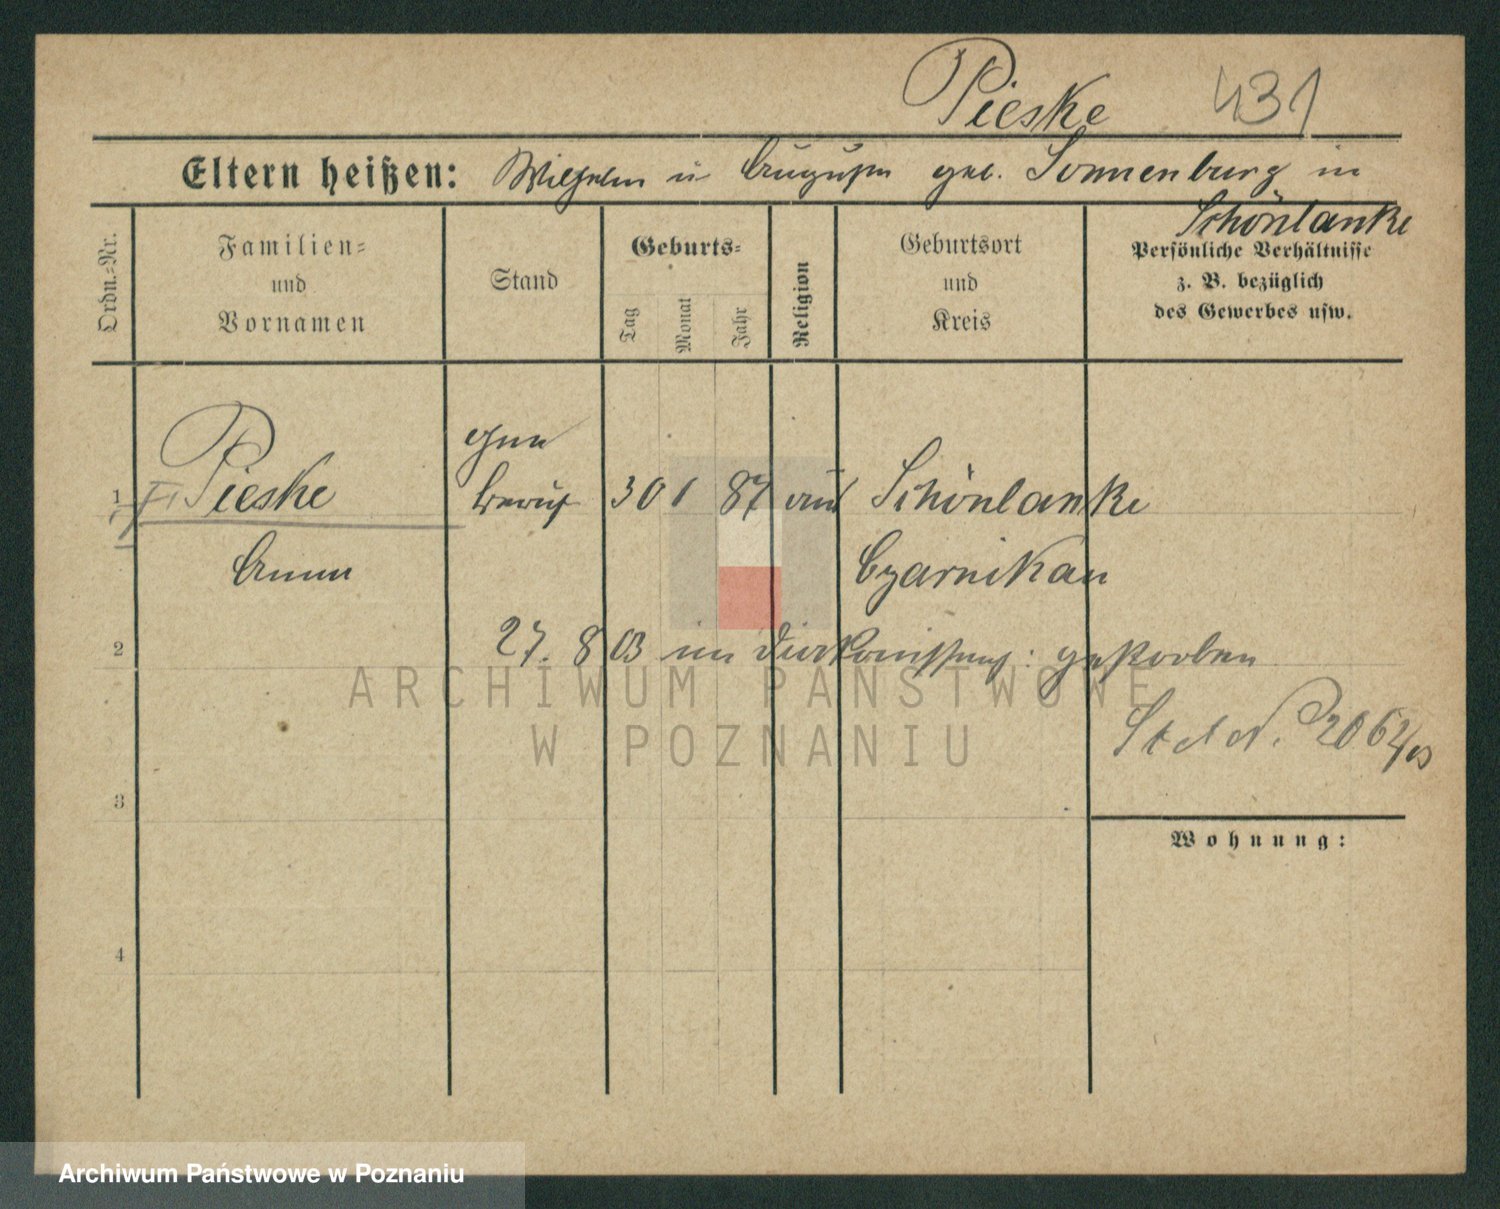 Pieske 431
Eltern heißen: Wilhelm u Auguste geb. Sonnenburg in
Schönlanke
Ordn.=Nr.
Familien=
und
Vornamen
Stand
Geburts=
Tag
Monat
Jahr
Religion
Geburtsort
und
Kreis
Persönliche Verhältnisse
z. B. bezüglich
des Gewerbes usw.
ohne
1 Pieske Beruf 30 1 87 Schönlanke
Anna Czarnikau
2 27. 8 03 im gestorben
ARCHIWUM PAŃSTWOWE
W POZNANIU
St A N. 2062/03
3
Wohnung:
4
Archiwum Państwowe w Poznaniu